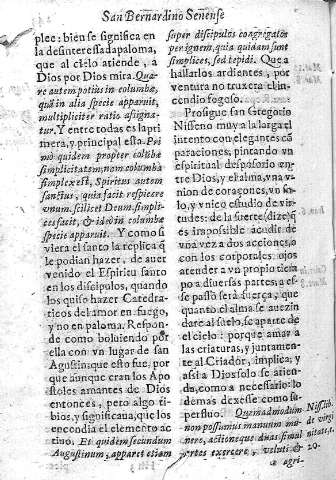 San Bernardino Senense
plee: bien se significa en
la desinteressada paloma,
que al cielo atiende, a
Dios por Dios mira. Qua-
re autem potius in columbæ,
quã in alia specie apparuit,
multipliciter ratio aßigna-
tur. Y entre todas es la pri
mera, y principal esta. Pri
mò quidem propter columbæ
simplicitatem, nam columba
simplex est, Spiritus autem
sanctus, quia facit respicere
vnum, scilicet Deum, simpli-
ces facit, & ideò in columbæ
specie apparuit. Y como si
viera el santo la replica q̃
le podian hazer, de auer
venido el Espiritu santo
en los discipulos, quando
los quiso hazer Catedra-
ticos del amor en fuego,
y no en paloma. Respon-
de como boluiendo por
ella con vn lugar de san
Agustin: que esto fue, por
que aunque eran los Apo-
stoles amantes de Dios
entonces, pero algo ti-
bios, y significana, que los
encendia el elemento ac
tiuo. Et quidem secundum
Augustinum, apparet etiam
super discipulos congregatos
per ignem, quia quidam sunt
simplices, sed tepidi. Que a
hallarlos ardientes, por
ventura no truxera el in-
cendio fogoso.
Prosigue san Gregorio
Nisseno muy a la larga el
intento con elegantes cõ
paraciones, pintando vn
espiritual desposorio en-
tre Dios, y el alma, vna v-
nion de coraçones, vn so-
lo, y vnico estudio de vir-
tudes: de la suerte (dize) q̃
es impossible acudir de
vna vez a dos acciones, o
con los corporales ojos
atender a vn propio tiem
po a diuersas partes, a es-
se passo serà fuerça, que
quanto el alma se auezin
dare al suelo, se aparte de
el cielo: porque amar a
las criaturas, y juntamen-
te al Criador, implica, y
assi a Dios solo se atien-
da, como a necessario: lo
demas dexese como su-
perfluo. Quemadmodum
non possumus manuum mu-
nere, actioneque duas simul
artes exercere, veluti &
agri-
Nisse. lib.
de virgi
nitate, c.
20.